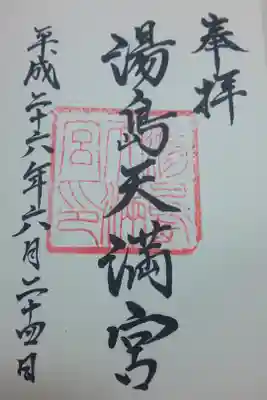 奉拝
湯島天満宮
平成二十六年六月二十四日